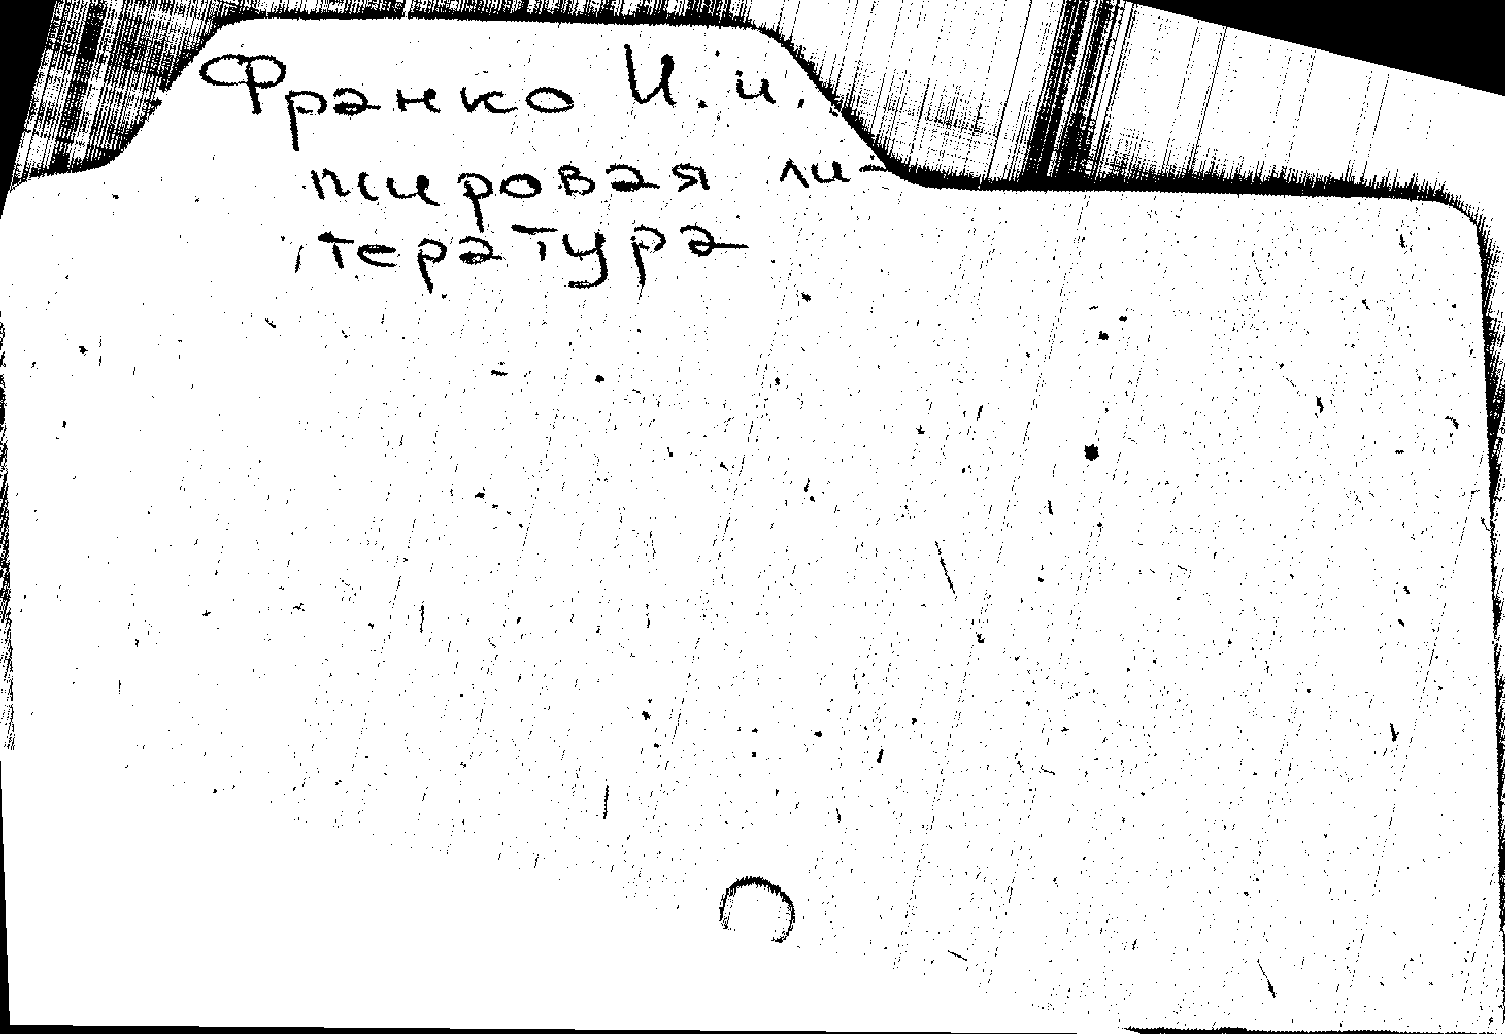 Франко И. и
мировая ли-
тература